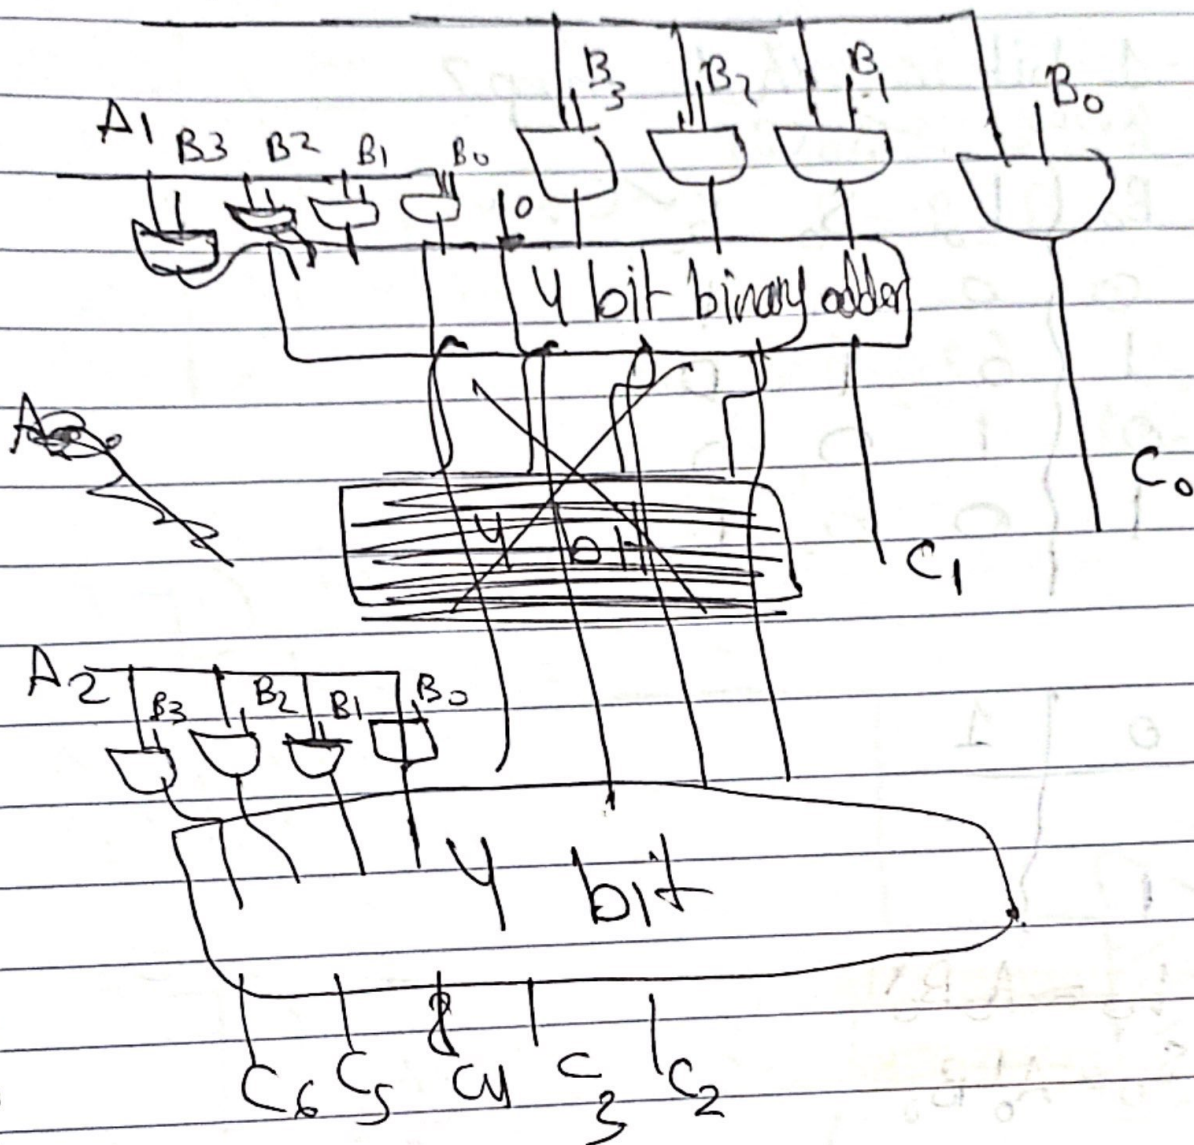 B3 B2 B1 B0
A1 B3 B2 B1 B0 0
4 bit binary adder
A
C0
4 bit
C1
A2 B3 B2 B1 B0
4 bit
C6 C5 C4 C3 C2